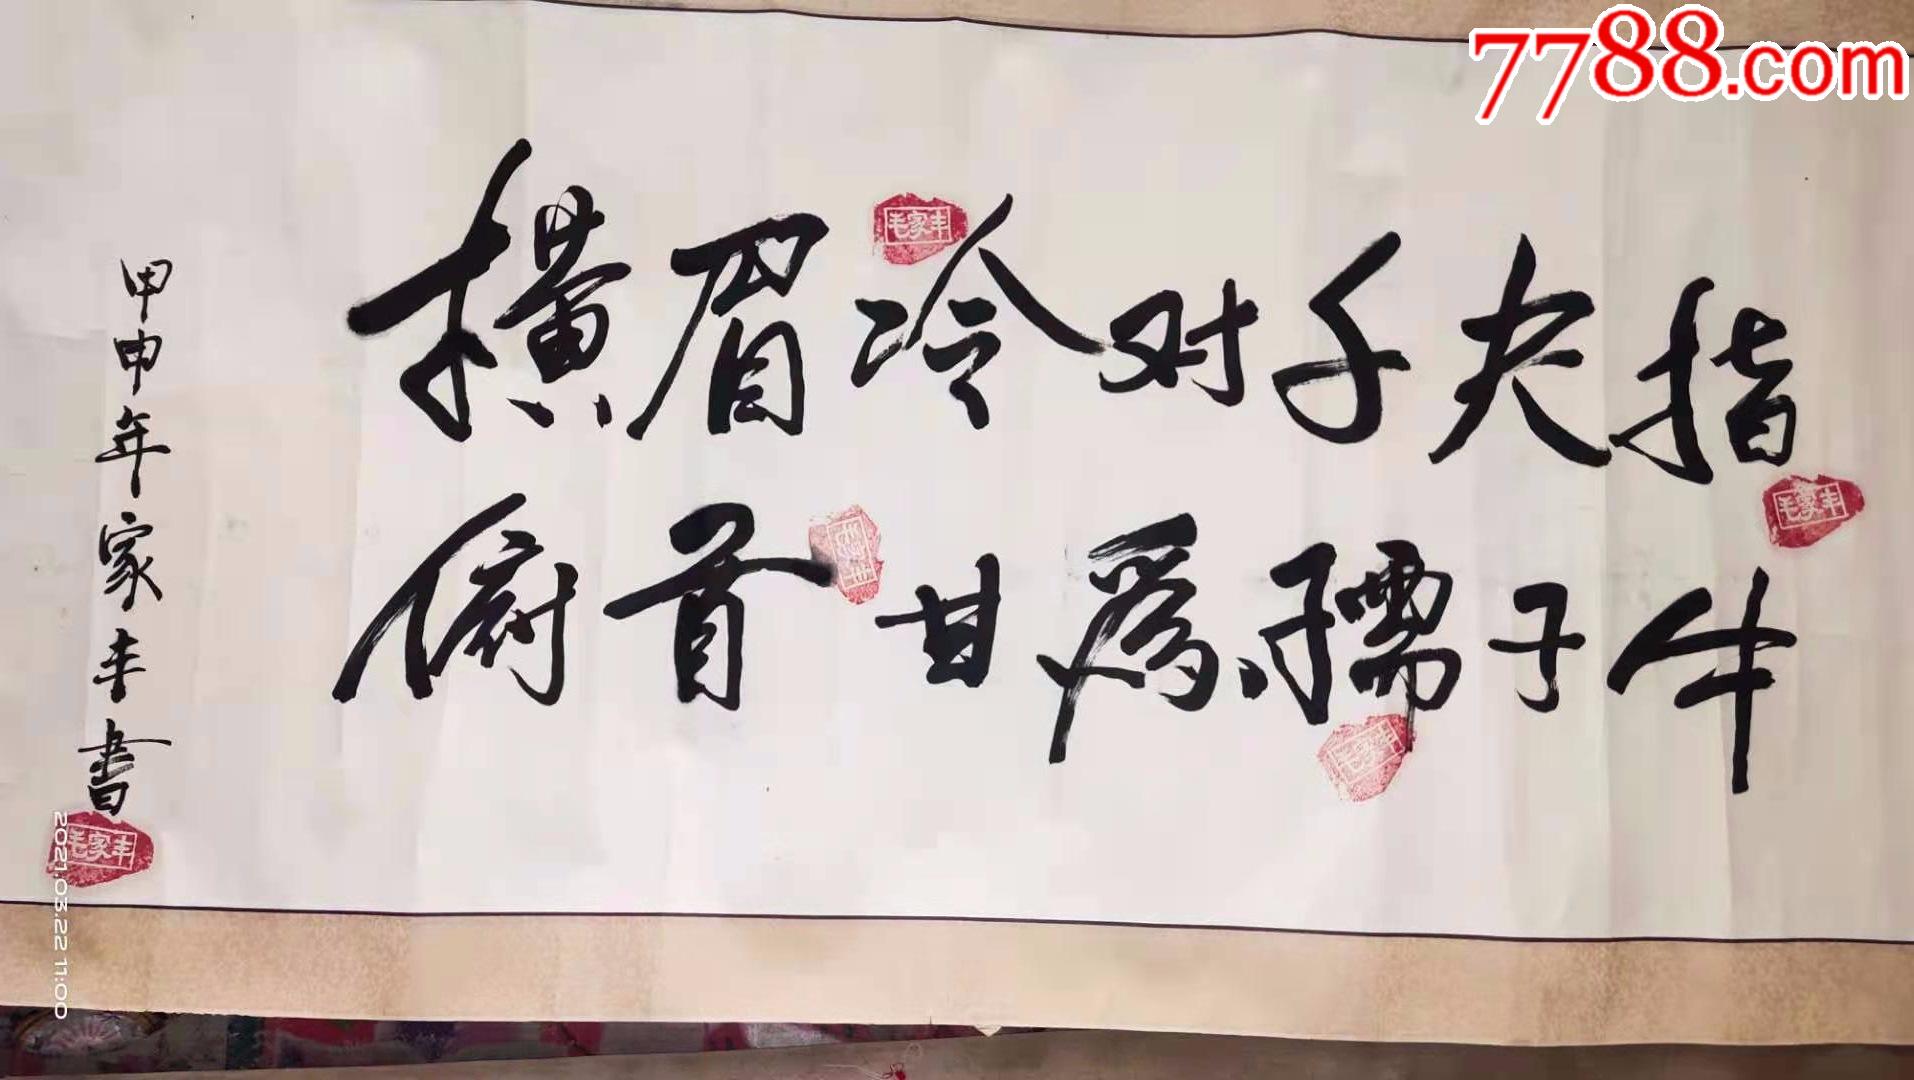 7788.com
横眉冷对千夫指
俯首甘爲孺子牛
甲申年家丰書
毛家丰
毛家丰
毛家丰
2021.03.22 11:00